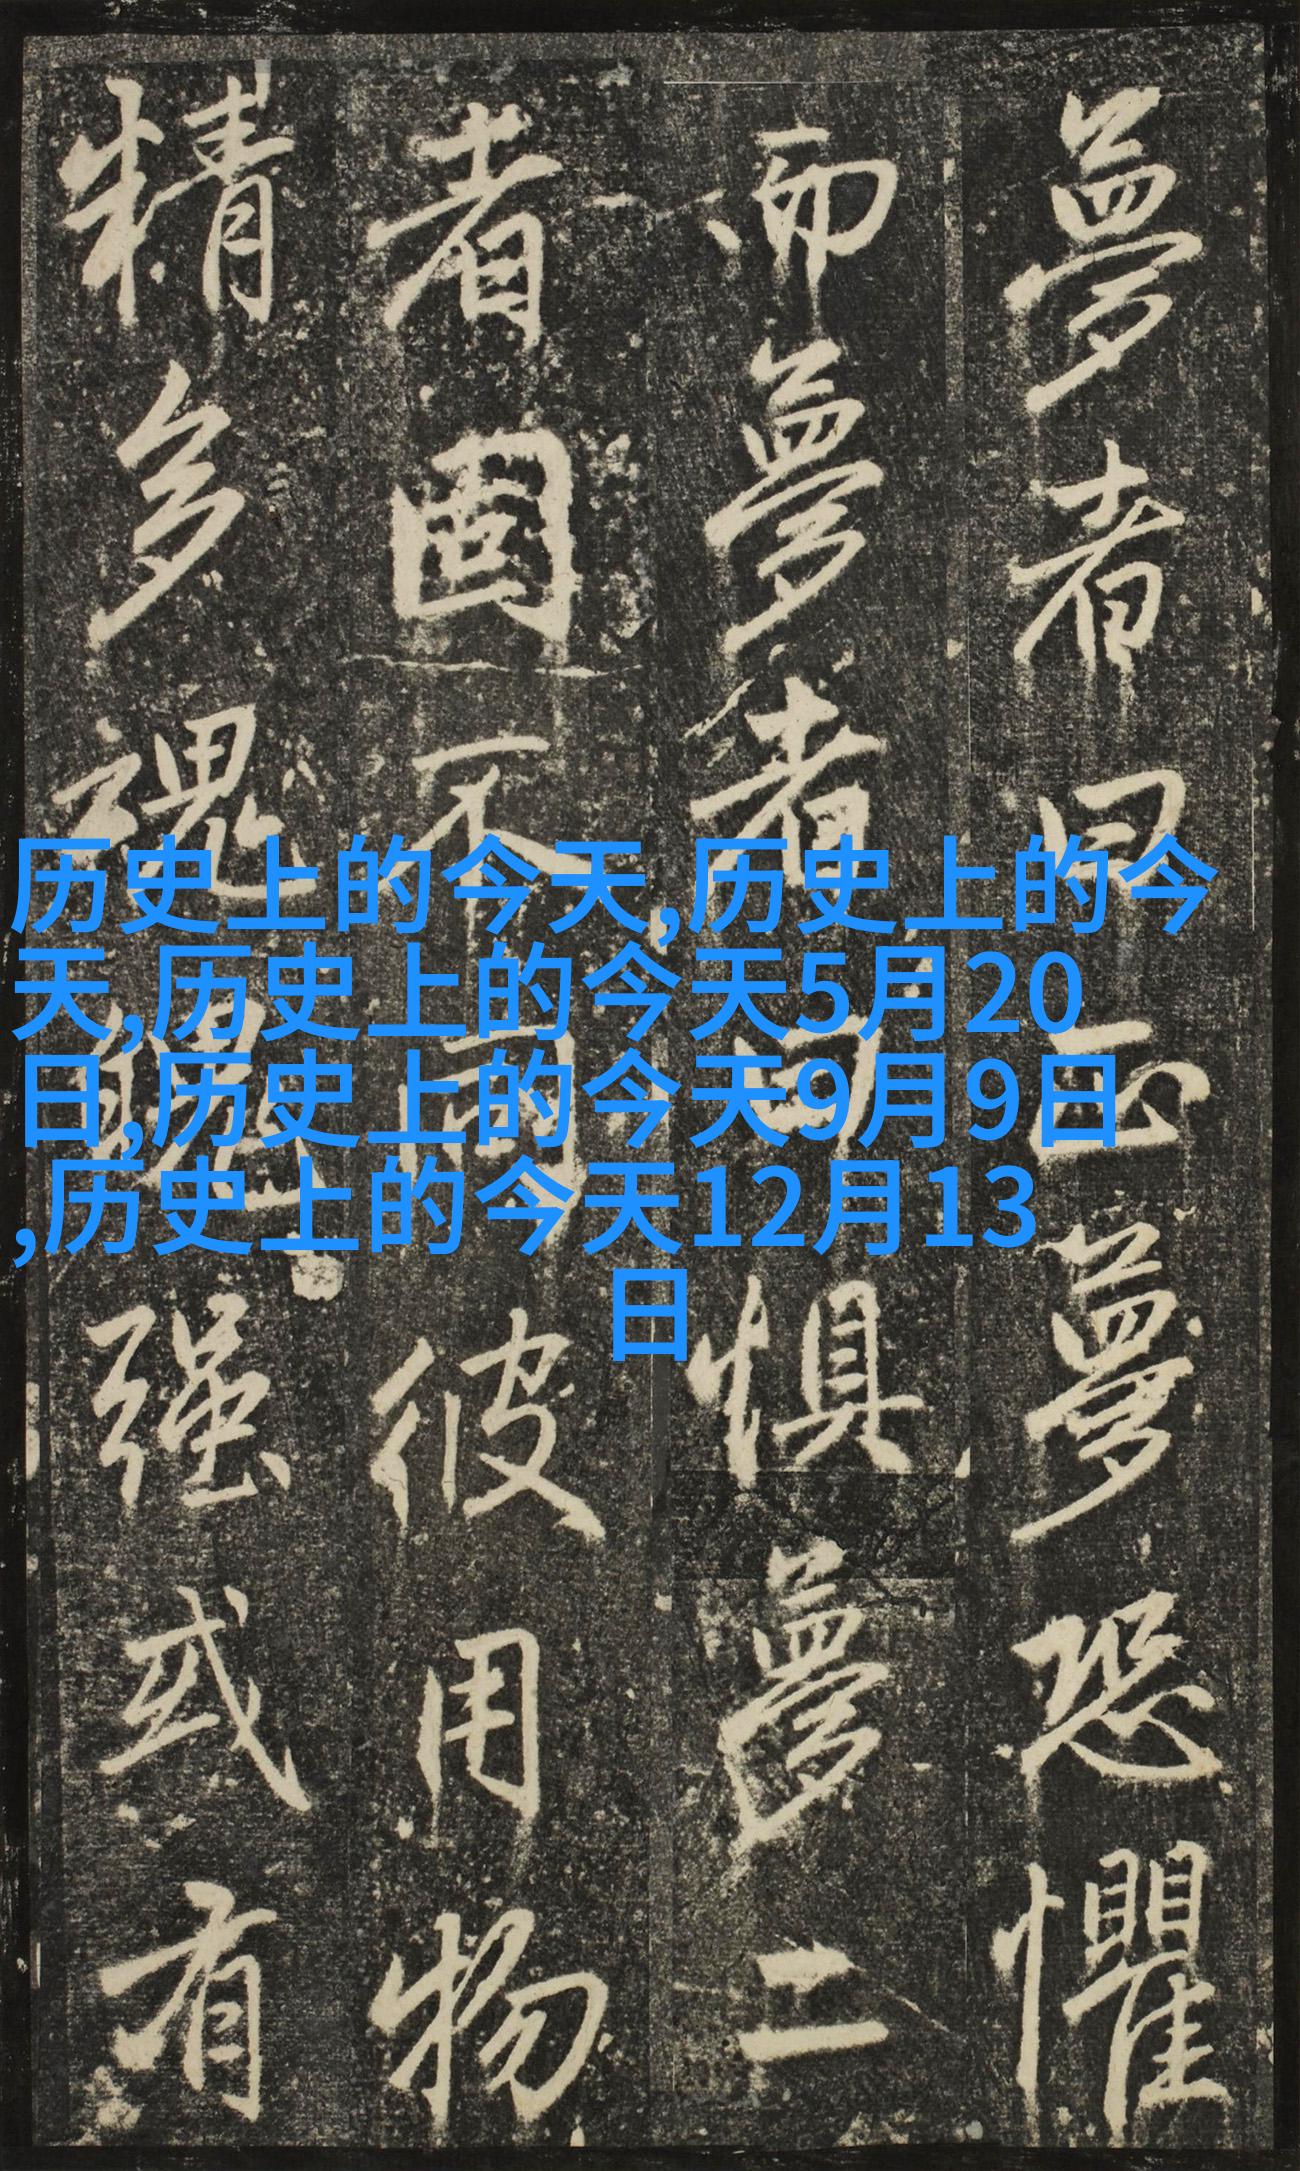 历史上的今天,历史上的今
天,历史上的今天5月20
日,历史上的今天9月9日
,历史上的今天12月13
日
夢者曰正夢恐懼
而夢者曰惧夢二
者固不同彼用物
精多魂魄强或有